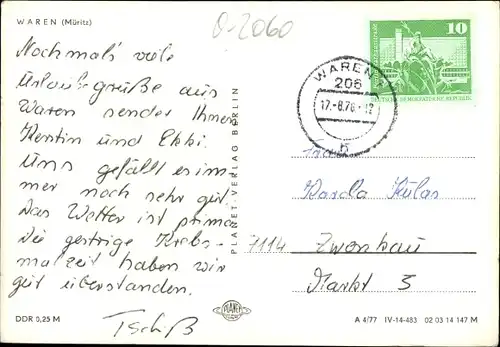 WAREN (Müritz)
O-2060
Nochmals viele
Urlaubsgrüße aus
Waren sendet Ihnen
Kerstin und Ekki.
Uns gefällt es im-
mer noch sehr gut.
Das Wetter ist prima
Die gestrige Krebs-
malzeit haben wir
gut überstanden.
Tschüß
DDR 0,25 M
PLANET-VERLAG BERLIN
PLANET
10
DEUTSCHE DEMOKRATISCHE REPUBLIK
WAREN
206
17.-8.78.-12
h
Frau
Karola Kulas
7114 Zwenkau
Markt 3
A 4/77 IV-14-483 02 03 14 147 M